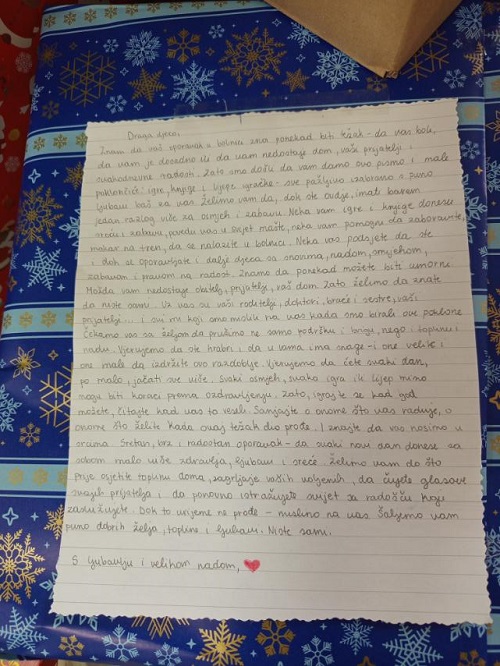 Draga djeco,
Znamo da vaš oporavak u bolnici zna ponekad biti težak - da vas boli,
da vam je dosadno ili da vam nedostaje dom, vaši prijatelji i
svakodnevne radosti. Zato smo došli da vam damo ovo pismo i male
poklončiće: igre, knjige i lijepe igračke - sve pažljivo izabrano s puno
ljubavi baš za vas. Želimo vam da, dok ste ovdje, imate barem
jedan razlog više za osmjeh i zabavu. Neka vam igre i knjige donesu
sreću i zabavu, povedu vas u svijet mašte, neka vam pomognu da zaboravite,
makar na tren, da se nalazite u bolnici. Neka vas podsjete da ste
i dok se oporavljate i dalje djeca sa snovima, nadom, smijehom,
zabavom i pravom na radost. Znamo da ponekad možete biti umorni.
Možda vam nedostaje obitelj, prijatelji, vaš dom. Zato želimo da znate
da niste sami. Uz vas su vaši roditelji, doktori, braća i sestre, vaši
prijatelji... i svi mi koji smo mislili na vas kada smo birali ove poklone
Čekamo vas sa željom da pružimo ne samo podršku i brigu, nego i toplinu i
nadu. Vjerujemo da ste hrabri i da u vama ima snage - i one velike i
one male da izdržite ovo razdoblje. Vjerujemo da ćete svaki dan,
po malo, jačati sve više. Svaki osmjeh, svaka igra ili lijep
mogu biti koraci prema ozdravljenju. Zato, igrajte se kad god
možete, čitajte kad vas to veseli. Sanjajte o onome što vas raduje, o
onome što želite kada ovaj težak dio prođe. I znajte da vas nosimo u
srcima. Sretan, brz i radostan oporavak - da svaki novi dan donese sa
sobom malo više zdravlja, ljubavi i sreće. Želimo vam da što
prije osjetite toplinu doma, zagrljaje vaših voljenih, da čujete glasove
svojih prijatelja i da ponovno istražujete svijet sa radošću koju
zaslužujete. Dok to vrijeme ne prođe - mislimo na vas šaljemo vam
puno dobrih želja, topline i ljubavi. Niste sami.
S ljubavlju i velikom nadom,